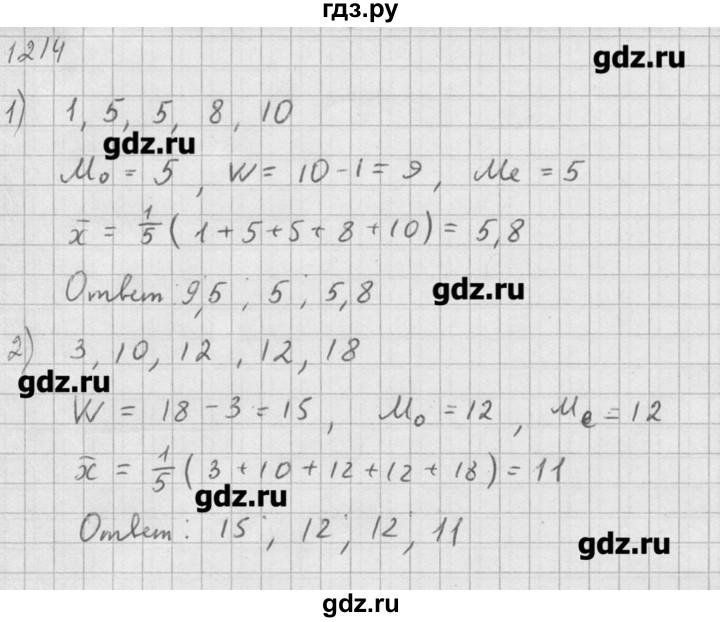 гдз.ру
1214
gdz.ru
1) 1, 5, 5, 8, 10
gdz.ru
Mo = 5, W = 10 - 1 = 9, Me = 5
x̄ = 1/5 (1 + 5 + 5 + 8 + 10) = 5,8
Ответ 9,5; 5; 5,8
gdz.ru
2) 3, 10, 12, 12, 18
gdz.ru
W = 18 - 3 = 15, Mo = 12, Me = 12
x̄ = 1/5 (3 + 10 + 12 + 12 + 18) = 11
gdz.ru
Ответ: 15; 12; 12; 11
gdz.ru
gdz.ru